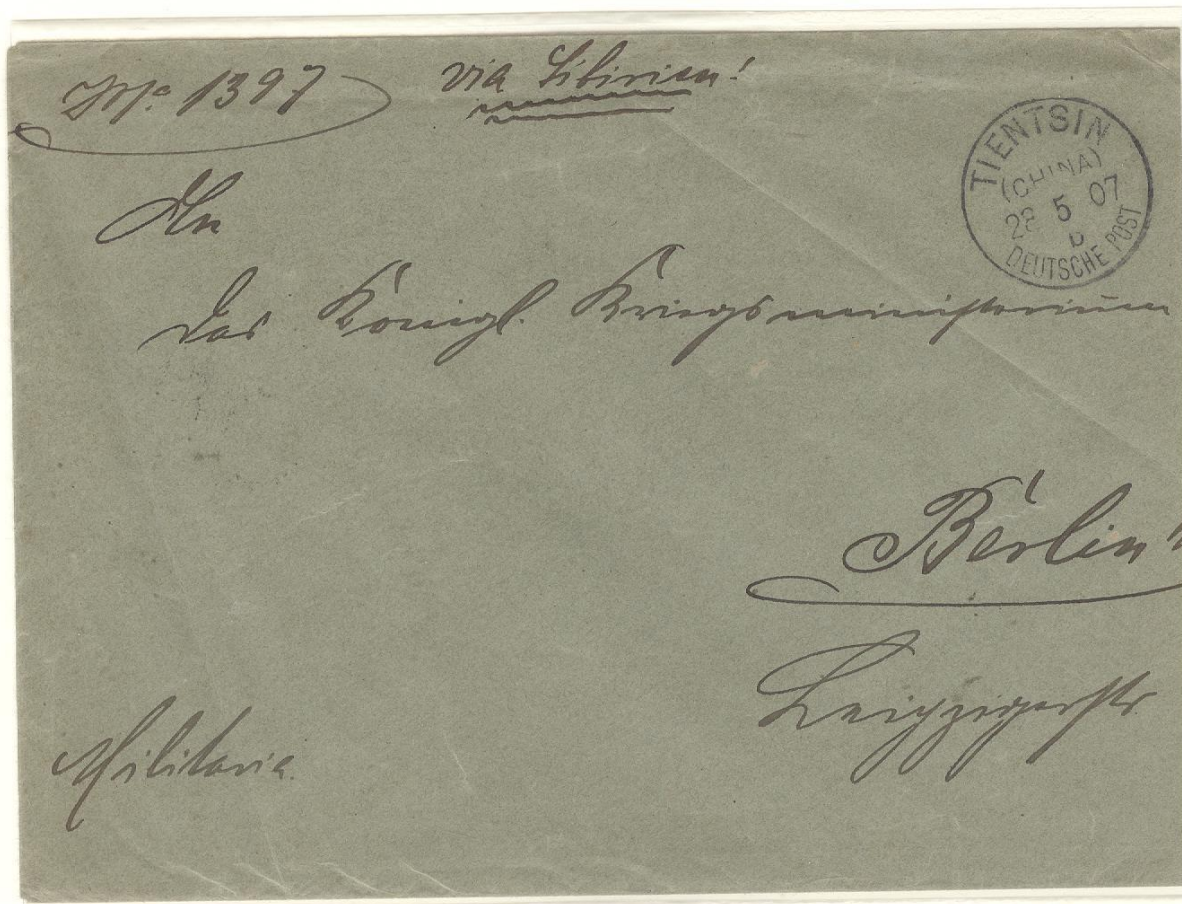 1397 via Sibirien!
TIENTSIN
(CHINA)
28 5 07
b
DEUTSCHE POST
An
das Königl. Kriegsministerium
Berlin
Leipzigerstr
Militaria.